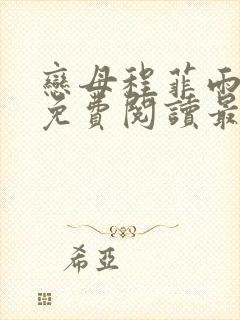 戀母程菲雨
免費閱讀最
希亞